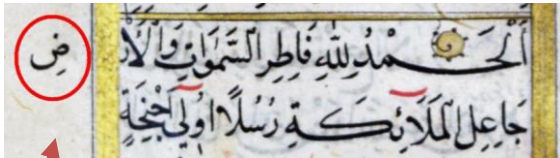 اَلْحَمْدُ لِلّٰهِ فَاطِرِ السَّمٰوَاتِ وَالْاَرْضِ
جَاعِلِ الْمَلَآئِكَةِ رُسُلًا اُولِٓي اَجْنِحَةٍ